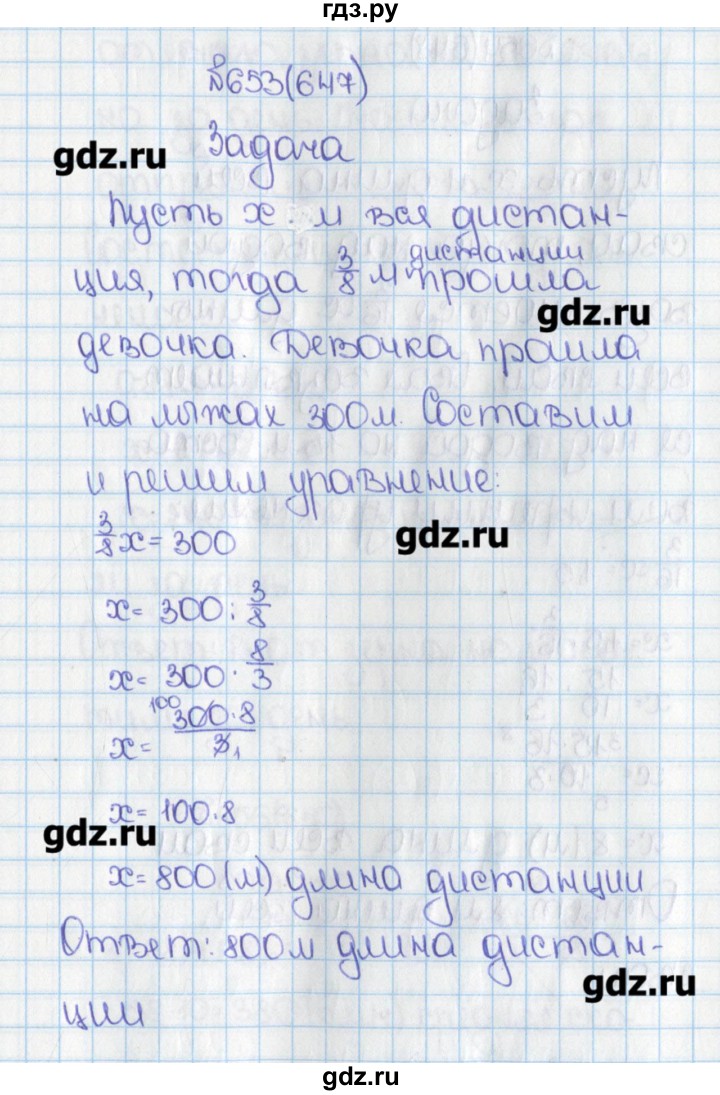 гдз.ру
№653(647)
gdz.ru
Задача
Пусть x м вся дистан-
ция, тогда 3/8 м дистанции прошла
gdz.ru
девочка. Девочка прошла
на лыжах 300м. Составим
и решим уравнение:
gdz.ru
3/8 x = 300
x = 300 : 3/8
x = 300 · 8/3
x = 100 300·8 / 3 1
x = 100·8
gdz.ru
x = 800 (м) длина дистанции
Ответ: 800м длина дистан-
gdz.ru
ции
gdz.ru